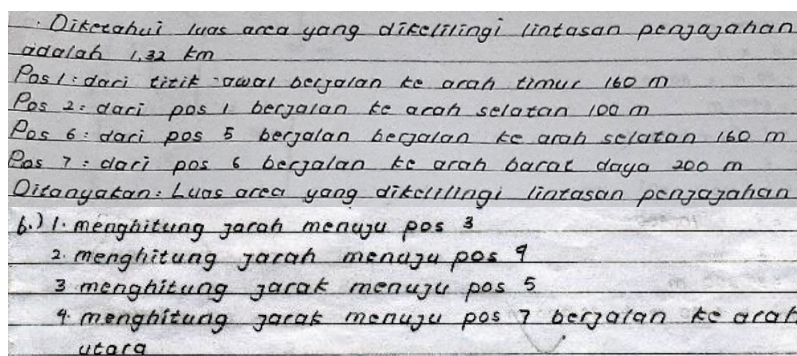 . Diketahui luas area yang dikelilingi lintasan penjajahan
adalah 1,32 km
Pos 1 : dari titik awal berjalan ke arah timur 160 m
Pos 2 : dari pos 1 berjalan ke arah selatan 100 m
Pos 6 : dari pos 5 berjalan berjalan ke arah selatan 160 m
Pos 7 : dari pos 6 berjalan ke arah barat daya 200 m
Ditanyakan : Luas area yang dikelilingi lintasan penjajahan
b.) 1. menghitung jarah menuju pos 3
2. menghitung jarah menuju pos 4
3 menghitung jarak menuju pos 5
4. menghitung jarak menuju pos 7 berjalan ke arah
utara